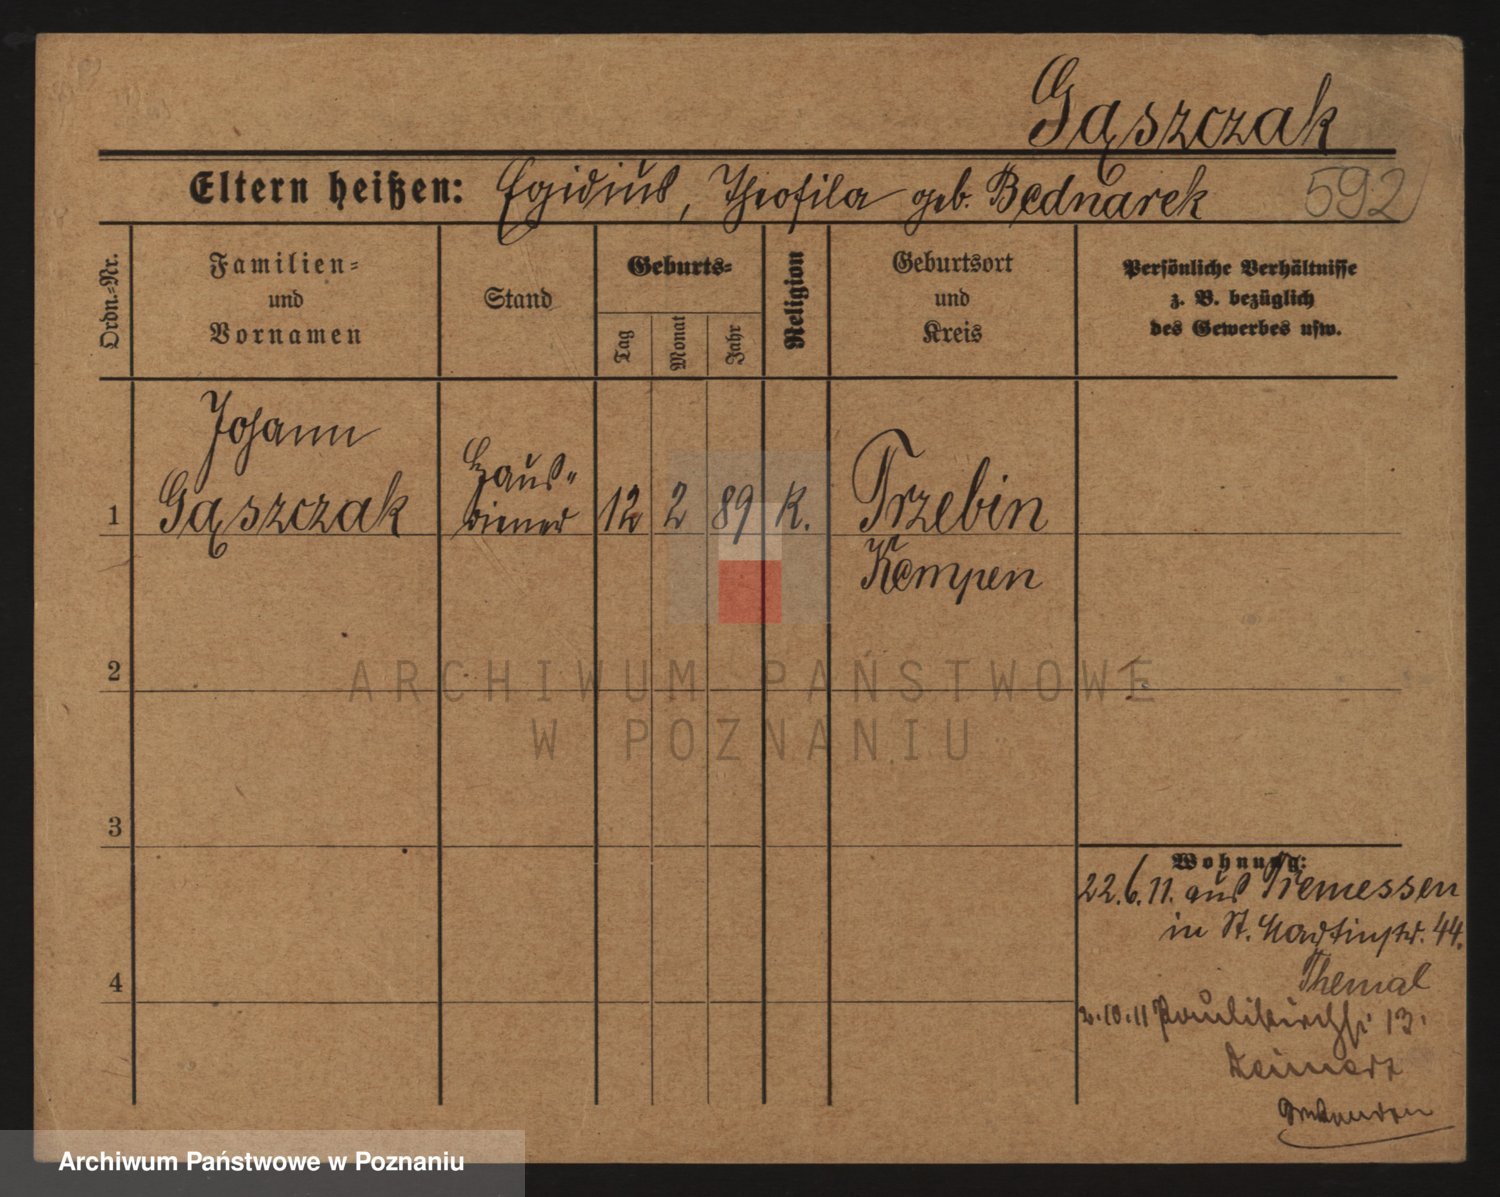 Gąszczak
Eltern heißen: Egidius, Theofila geb. Bednarek 592
Ordn.-Nr.
Familien-
und
Vornamen
Stand
Geburts-
Tag
Monat
Jahr
Religion
Geburtsort
und
Kreis
Persönliche Verhältnisse
z. B. bezüglich
des Gewerbes usw.
Johann
Haus-
1 Gąszczak diener 12 2 89 K. Trzebin
Kempen
2
ARCHIWUM PAŃSTWOWE
W POZNANIU
3
Wohnung:
22.6.11. aus Tremessen
in St. Martinstr. 44.
4
Themal
2.10.11 Paulikirchstr. 13.
Archiwum Państwowe w Poznaniu